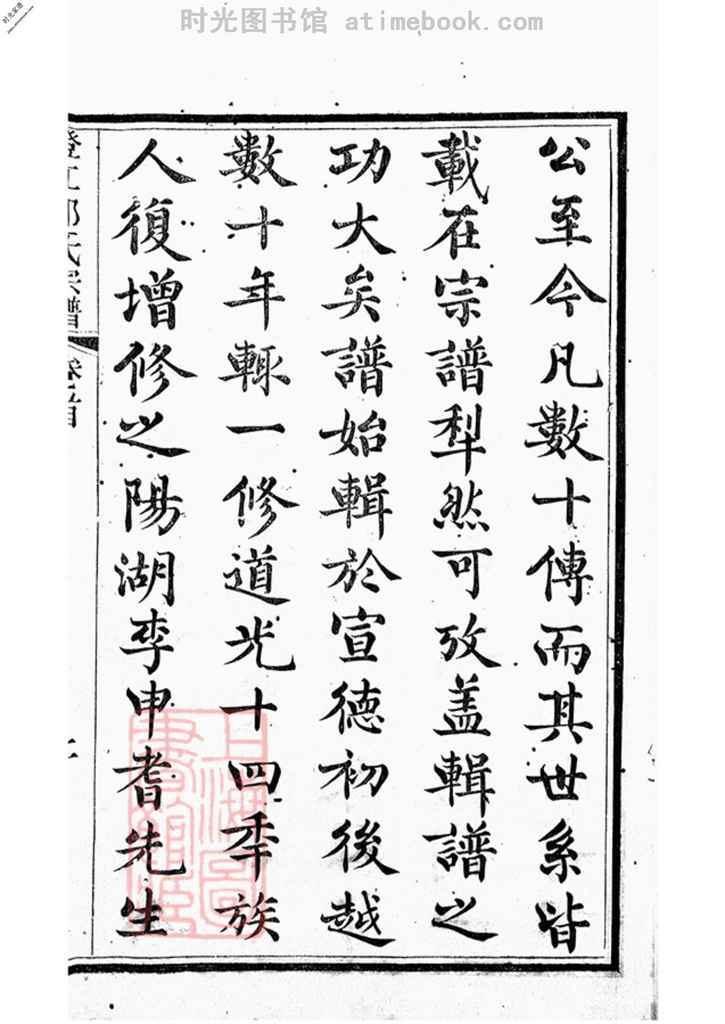 时光图书馆 atimebook.com
公至今凡數十傳而其世系皆
載在宗譜犁然可攷盖輯譜之
功大矣譜始輯於宣德初後越
數十年輒一修道光十四年族
人復增修之陽湖李申耆先生
氏宗譜